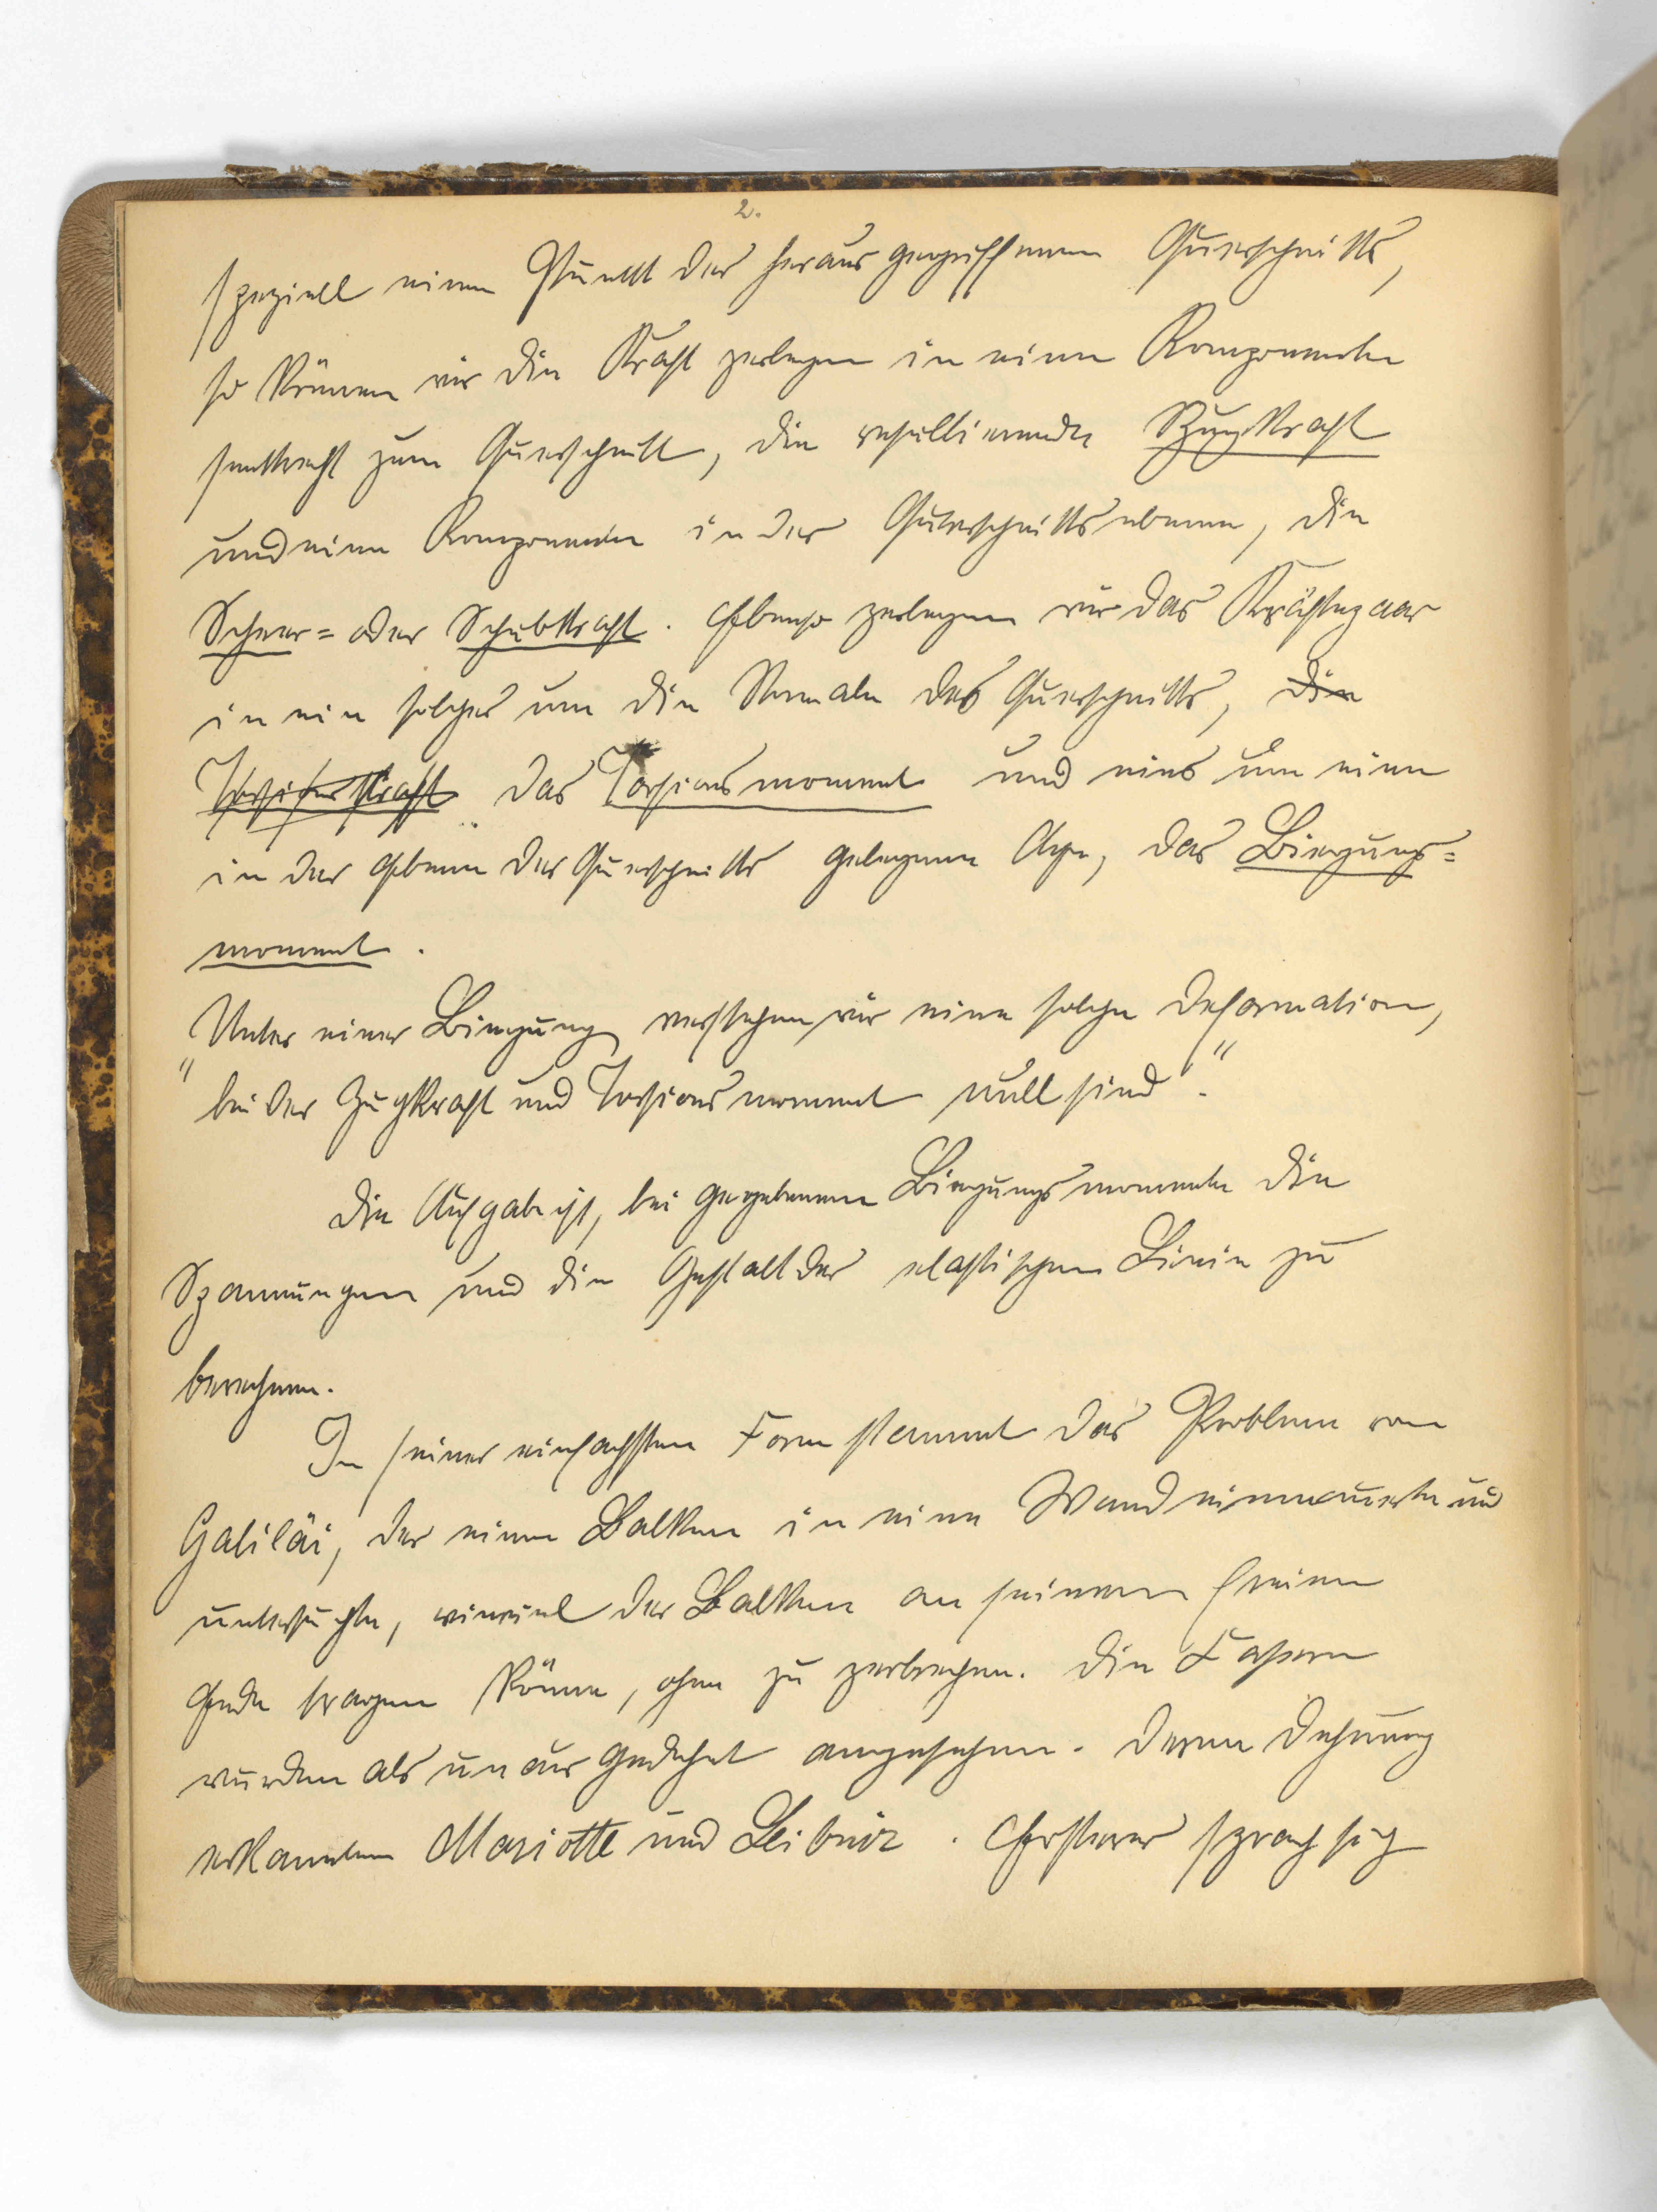 2.
speziell einen Punkt des herausgegriffenen Querschnitts,
so können wir die Kraft zerlegen in eine Komponente
senkrecht zum Querschnitt, die resultierende Zugkraft
und eine Komponente in der Querschnittsebene, die
Scheer= oder Schubkraft. Ebenso zerlegen wir das Kräftepaar
in ein solches um die Normale des Querschnitts, die
Torsionskraft das Torsionsmoment und eins um eine
in der Ebene des Querschnitts gelegene Axe, das Biegungs=
moment.
"Unter einer Biegung verstehen wir eine solche Deformation,
bei der Zugkraft und Torsionsmoment null sind".
Die Aufgabe ist, bei gegebenem Biegungsmomente die
Spannungen und die Gestalt der elastischen Linie zu
berechnen.
In seiner einfachsten Form stammt das Problem von
Galiläi, der einen Balken in eine Wand einmauerte und
untersuchte, wieviel der Balken an seinem freien
Ende tragen könne, ohne zu zerbrechen. Die Fasern
wurden als unausgedehnt angesehen. Deren Dehnung
erkannten Mariotte und Leibniz. Ersterer sprach sich